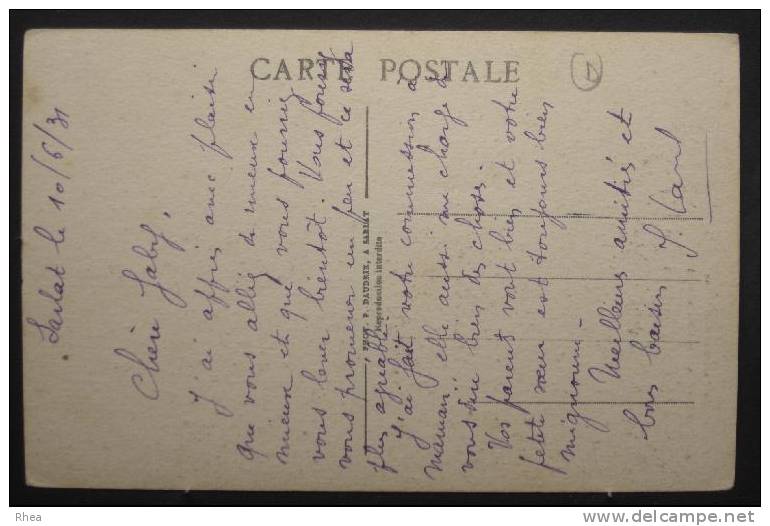 CARTE POSTALE
Sarlat le 10/6/31
Chère Gaby,
J'ai appris avec plaisir
que vous alliez de mieux en
mieux et que vous pourriez
vous lever bientôt. Vous pourrez
vous promener un peu et ce sera
plus agréable.
J'ai fait votre commission à
maman elle aussi me charge de
vous dire bien des choses.
Vos parents vont bien et votre
petite sœur est toujours bien
mignonne.
Meilleures amitiés et
bons baisers J.
PHOT. P. DAUDRIX, A SARLAT
Reproduction interdite
Rhea
www.delcampe.net